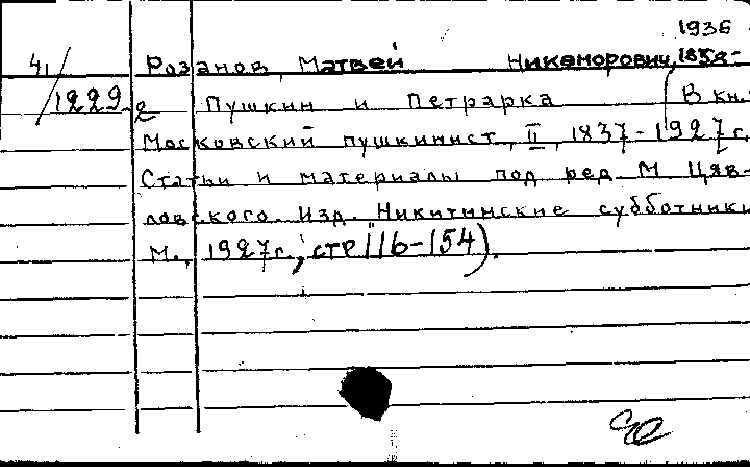 1936
4, Розанов, Матвей Никанорович, 1858-
/1229.2 Пушкин и Петрарка (В кн.:
Московский пушкинист, II, 1837-1927 г.
Статьи и материалы под ред. М. Цяв-
ловского. Изд. Никитинские субботники
М., 1927 г., стр 116-154).